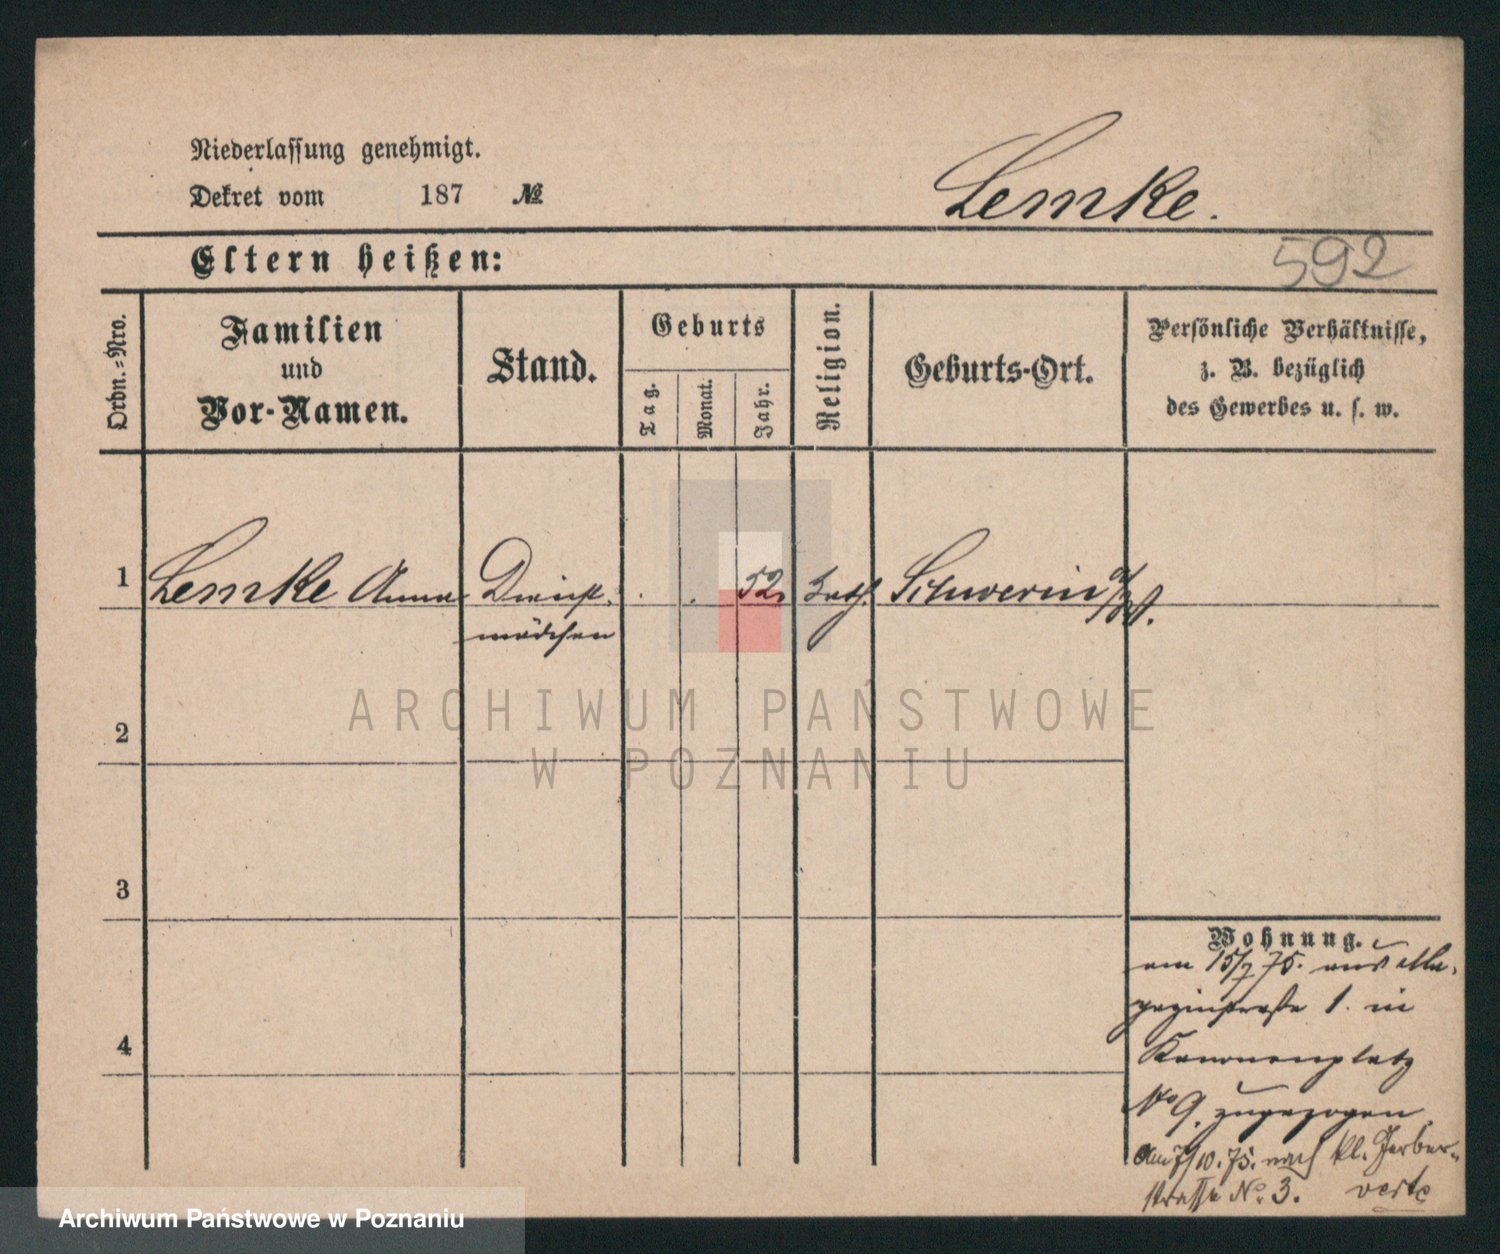 Niederlassung genehmigt.
Dekret vom 187 №
Lemke.
Eltern heißen:
592
Ordn.-Nro.
Familien
und
Vor-Namen.
Stand.
Geburts
Tag.
Monat.
Jahr.
Religion.
Geburts-Ort.
Persönliche Verhältnisse,
z. B. bezüglich
des Gewerbes u. s. w.
1 Lemke Anna Dienst- . . 52. kath. Schwerin a/W.
mädchen
ARCHIWUM PAŃSTWOWE
W POZNANIU
2
3
4
Wohnung.
am 15/7 75. aus Ma-
gazinstraße 1. in
Kanonenplatz
No 9. zugezogen.
Am 7/10. 75. nach kl. Gerber-
straße No. 3. verte
Archiwum Państwowe w Poznaniu